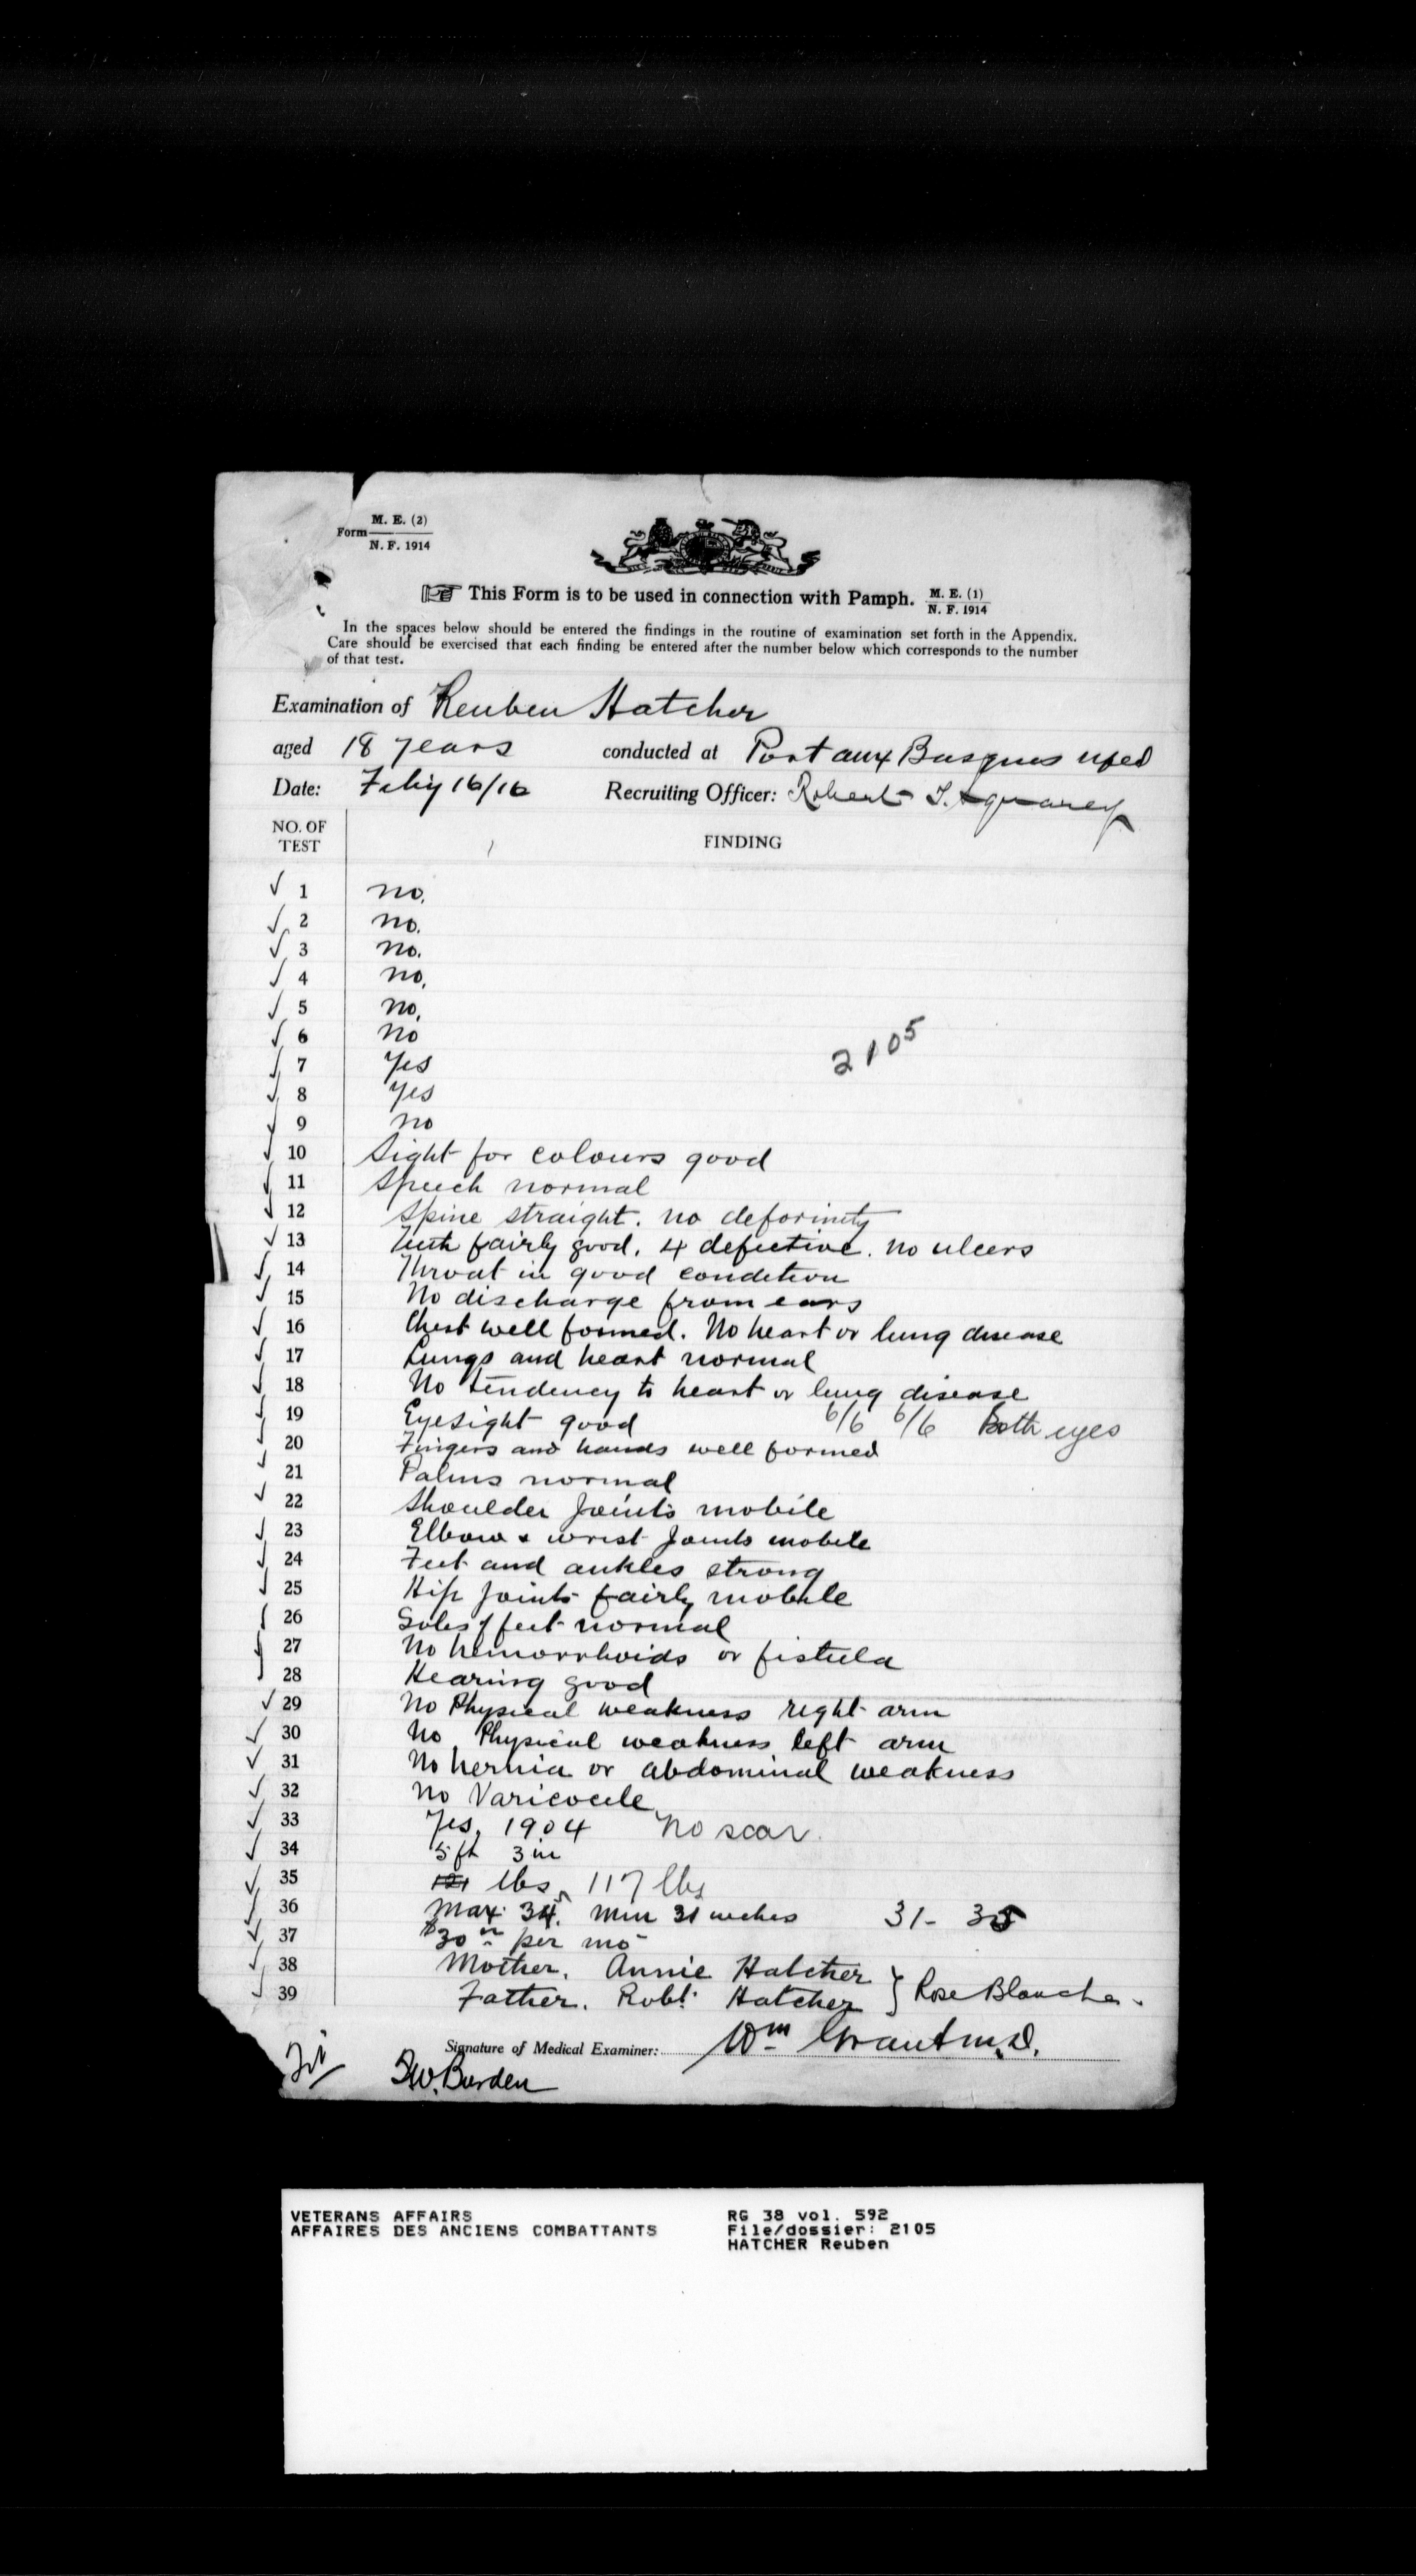 Form M. E. (2)
N. F. 1914
This Form is to be used in connection with Pamph. M. E. (1)
N. F. 1914
In the spaces below should be entered the findings in the routine of examination set forth in the Appendix.
Care should be exercised that each finding be entered after the number below which corresponds to the number
of that test.
Examination of Reuben Hatcher
aged 18 years conducted at Port aux Basques Nfld
Date: Feby 16/16 Recruiting Officer: Robert T.
NO. OF
TEST
FINDING
1 no.
2 no.
3 no.
4 no.
5 no.
6 no
2105
7 Yes
8 Yes
9 no
10 Sight for colours good
11 Speech normal
12 Spine straight. no deformity
13 Teeth fairly good, 4 defective. no ulcers
14 Throat in good condition
15 No discharge from ears
16 Chest well formed. No heart or lung disease
17 Lungs and heart normal
18 No tendency to heart or lung disease
19 Eyesight good 6/6 6/6 Both eyes
20 Fingers and hands well formed
21 Palms normal
22 Shoulder joints mobile
23 Elbow & wrist joints mobile
24 Feet and ankles strong
25 Hip joints fairly mobile
26 Soles of feet normal
27 No hemorrhoids or fistula
28 Hearing good
29 No Physical weakness right arm
30 No Physical weakness left arm
31 No hernia or abdominal weakness
32 No Varicocele
33 Yes, 1904 No scar.
34 5 ft 3 in
35 121 lbs, 117 lbs
36 Max. 34. Min 31 inches 31 - 35
37 $30 per mo
38 Mother, Annie Hatcher
39 Father. Robt. Hatcher } Rose Blanche.
Signature of Medical Examiner: Wm Grant M.D.
Fit
S.W. Burden
VETERANS AFFAIRS
AFFAIRES DES ANCIENS COMBATTANTS
RG 38 vol. 592
File/dossier: 2105
HATCHER Reuben